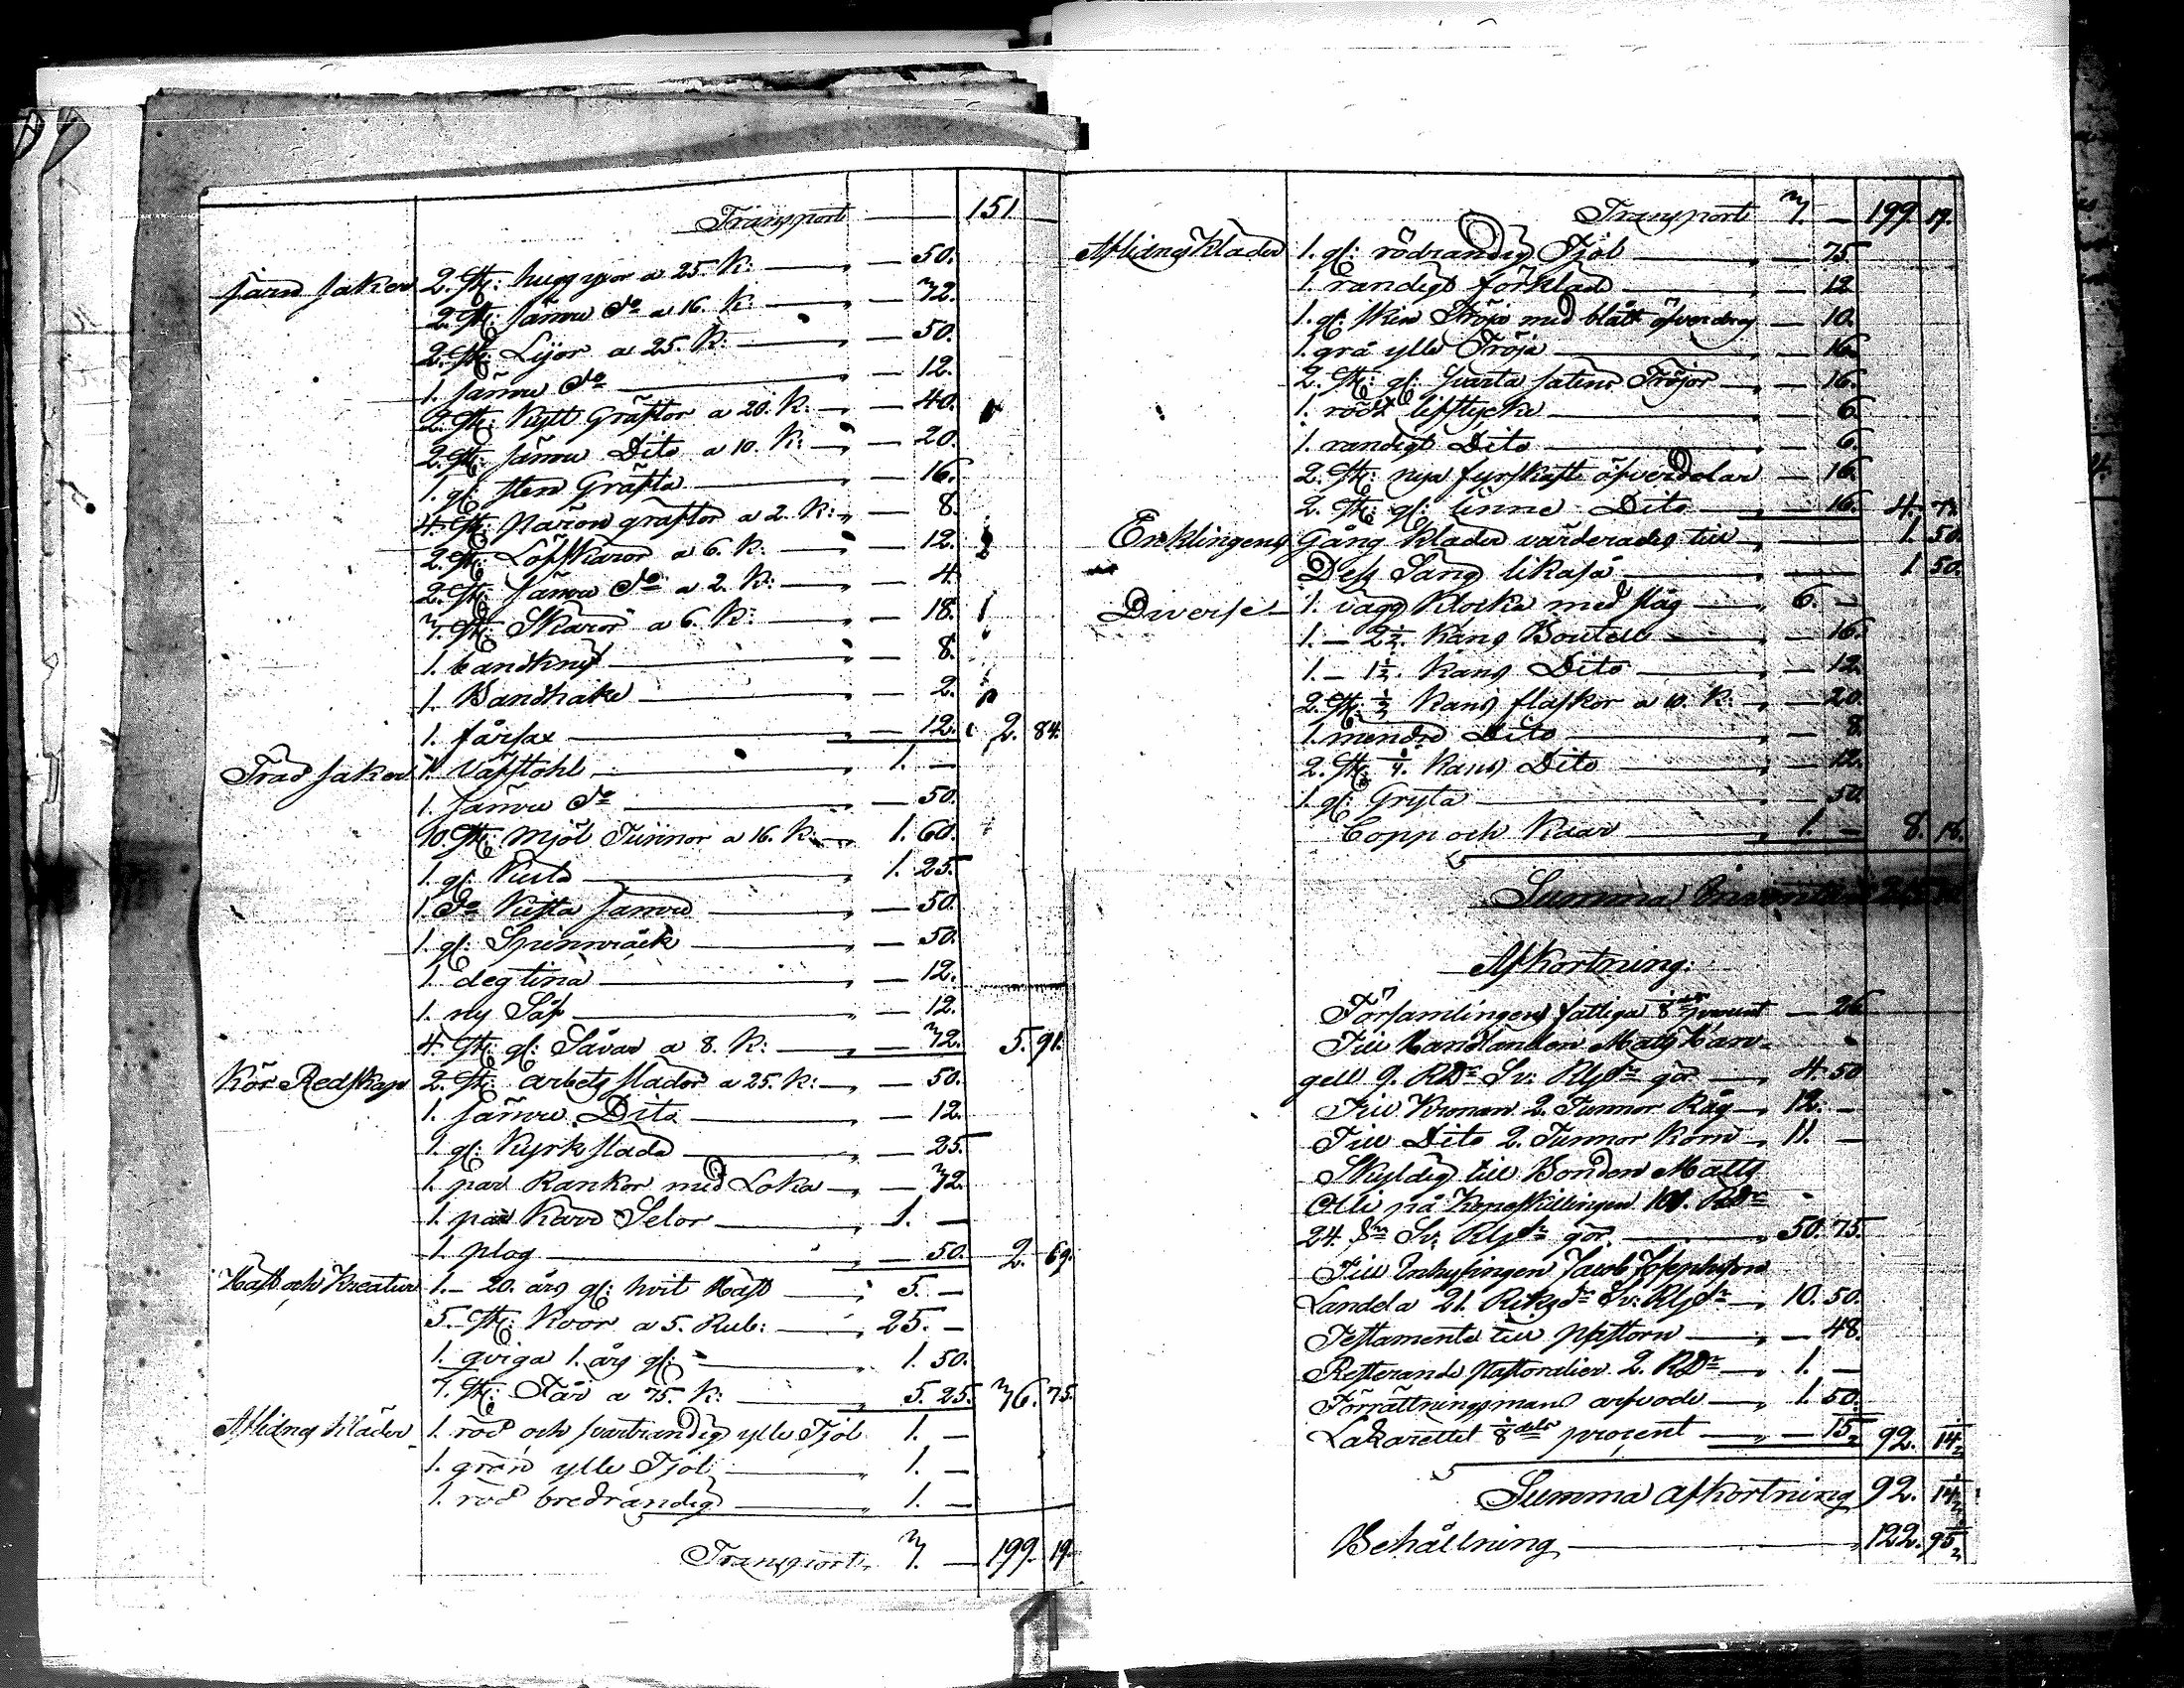 Transport — 151. —
Järn saker 2. st: hugg yxor a 25. K: — 50.
2. st: sämre do a 16. K: — 32.
2. st: Lijor a 25. K: — 50.
1. sämre do — 12.
2. st: Kytt Gräftor a 20. K: — 40.
2. st: sämre Dito a 10. K: — 20.
1. gl: sten Gräfta — 16.
4. st: päron gräftor a 2. K: — 8.
2. st: Löfskäror a 6. K: — 12.
2. st: sämre do a 2. K: — 4.
3. st: Skäror a 6. K: — 18.
1. bandknif — 8.
1. Bandhake — 2.
1. fårsax — 12. 2. 84.
Träd saker 1. Väfstohl 1. —
1. sämre do — 50.
10. st: mjöl Tunnor a 16. K: 1. 60.
1. gl: Kista 1. 25.
1. do Kista sämre — 50.
1. gl: Spinnråck — 50.
1. degtina — 12.
1. ny Så — 12.
4. st: gl: Såar a 8. K: — 32. 5. 91.
Kör Redskap 2. st: arbets slädor a 25. K: — 50.
1. sämre Dito — 12.
1. gl: Kyrk släda — 25.
1. par Rankor med Loka — 32.
1. par Selor 1. —
1. plog — 50. 2. 69.
Häst och Kreatur 1. – 20. års gl: hvit Häst 5. —
5. st: Koor a 5. Rub: 25. —
1. qviga 1. års gl: 1. 50.
7. st: Får a 75. K: 5. 25. 36. 75.
Aflidnes kläder 1. röd och svartrandig ylle Tjol 1. —
1. grön ylle Tjol 1. —
1. röd bredrandig 1. —
Transport 3. — 199. 19.
Transport 3. — 199. 19.
Aflidnes kläder 1. gl: rödrandig Tjol — 75
1. randigt förkläd — 12
1. gl: skin Tröja med blått öfverdrag — 10.
1. grå ylle Tröja — 16.
2. st: gl: svarta satens Tröjor — 16.
1. rödt lifstycke — 6.
1. randigt Dito — 6.
2. st: nya fyrskafts öfverdelar — 16.
2. st: gl: linne Dito — 16. 4. 73.
Enklingens Gång kläder värderades till 1. 50.
Dess Säng likaså 1. 50.
Diverse 1. vägg Klocka med slag 6. —
1. – 2½. Kans Boutell — 16.
1. – 1½. Kans Dito — 12.
2. st: ½ Kans flaskor a 10. K: — 20.
1. mindre Dito — 8.
2. st: ¼. Kans Dito — 12.
1. gl: Gryta — 50.
Copp och Kaar 1. — 8. 18.
Summa
Afkortning:
Församlingens fattiga ⅛ procent — 26
Till Handlanden Matts
gell 9. RDr Sv: Rgs gör 4. 50
Till Kronan 2. Tunnor Råg 12. —
Till Dito 2. Tunnor Korn 11. —
Skyldig till Bonden Matts
Olli på Köpeskillingen 101. RDr
24. Sv: Rgs gör 50. 75.
Till Inhysingen Jacob Josephsson
Landela 21. Riksdr Sv: Rgs 10. 50.
Testamente till — 48.
Resterande pastoralier 2. RDr 1. —
Förrättningsmans arfvode 1. 50.
Lazarettet ⅛ dels procent — 15½ 92. 14½
Summa afkortning 92. 14½
Behållning 122. 95½